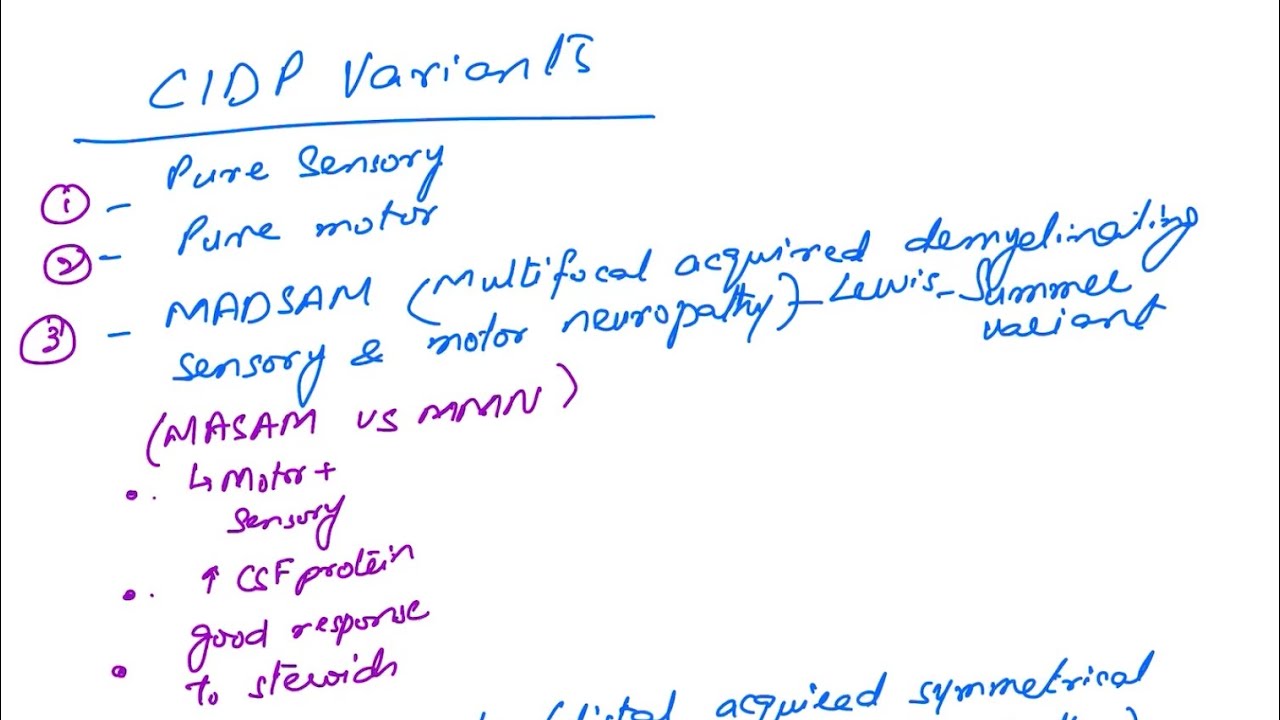 CIDP Variants
① - Pure Sensory
② - Pure motor
③ - MADSAM (Multifocal acquired demyelinating
sensory & motor neuropathy) - Lewis-Summer
variant
(MASAM vs MMN)
• ↳ Motor +
sensory
• ↑ CSF protein
• good response
to steroids
(distal acquired symmetrical